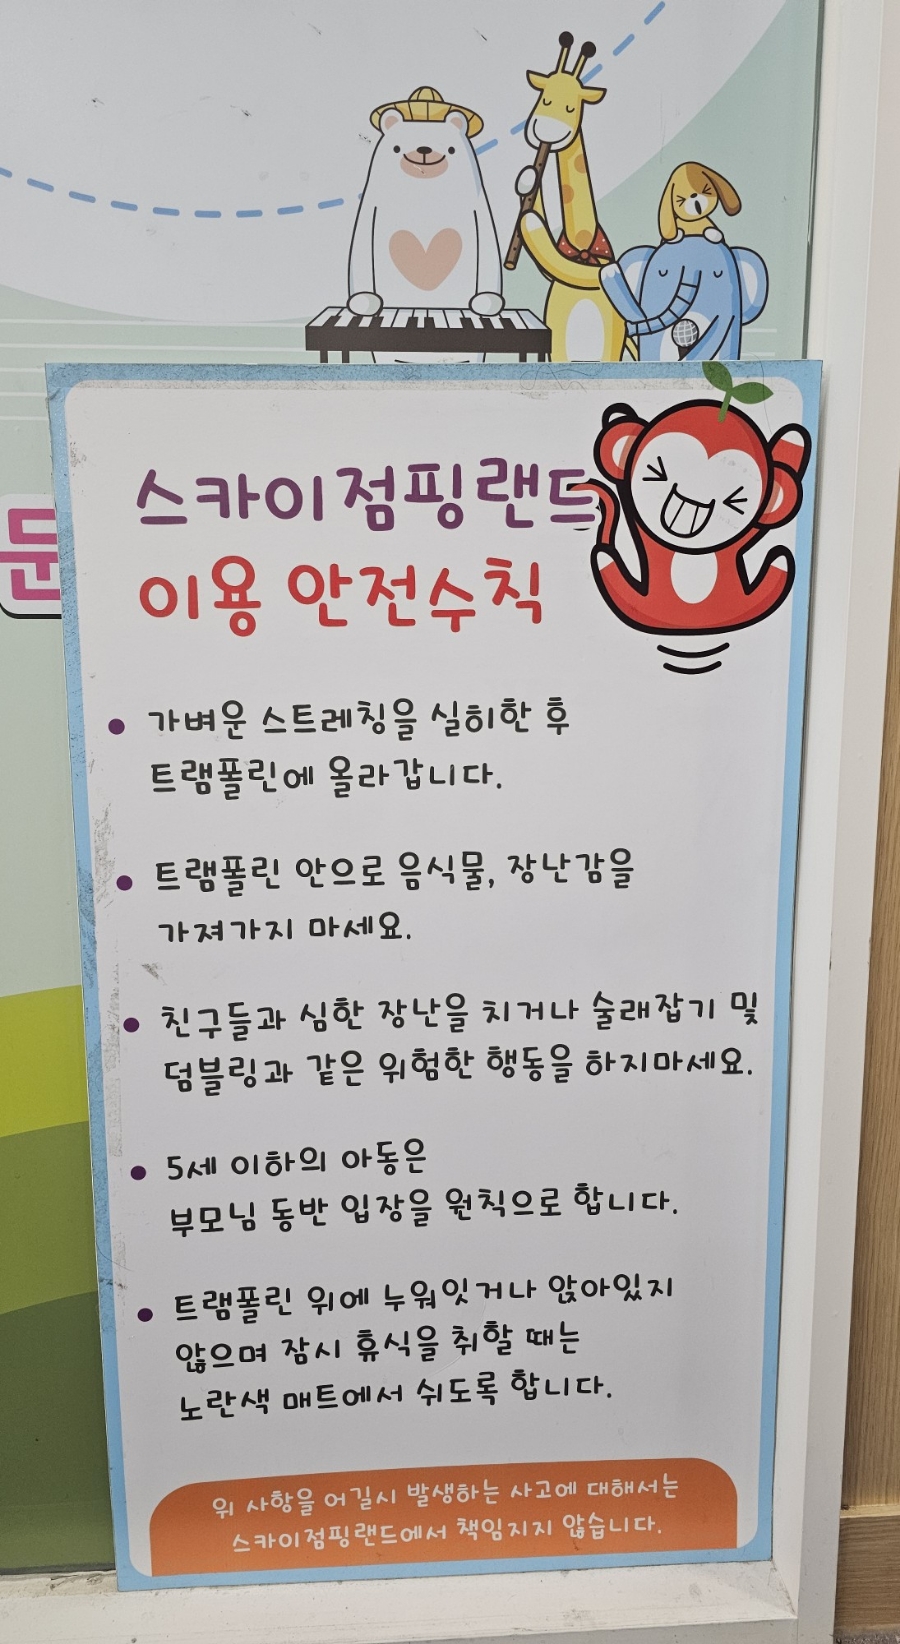 스카이점핑랜드
이용 안전수칙
• 가벼운 스트레칭을 실히한 후
트램폴린에 올라갑니다.
• 트램폴린 안으로 음식물, 장난감을
가져가지 마세요.
• 친구들과 심한 장난을 치거나 술래잡기 및
덤블링과 같은 위험한 행동을 하지마세요.
• 5세 이하의 아동은
부모님 동반 입장을 원칙으로 합니다.
• 트램폴린 위에 누워잇거나 앉아있지
않으며 잠시 휴식을 취할 때는
노란색 매트에서 쉬도록 합니다.
위 사항을 어길시 발생하는 사고에 대해서는
스카이점핑랜드에서 책임지지 않습니다.